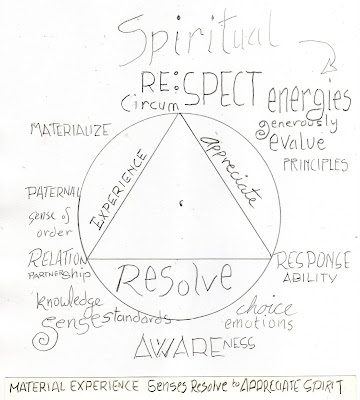 Spiritual
RE:SPECT
Circum
energies
generously
evalve
PRINCIPLES
MATERIALIZE
EXPERIENCE
appreciate
PATERNAL
sense of
order
RELATION
PARTNERship
RESolve
RESPONSE
ABILITY
knowledge
Sense standards
choice
emotions
AWAREness
MATERIAL EXPERIENCE Senses Resolve to APPRECIATE SPIRIT